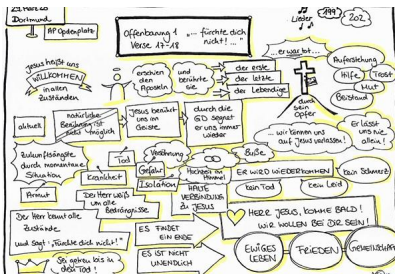 29.März.20
Dortmund
AP Opdenplatz
Offenbarung 1 „... fürchte dich
Verse 17-18 nicht!..."
Lieder
199
202
jesus heißt uns
WILLKOMMEN
in allen
Zuständen
erschien
den
Aposteln
und
berührte
sie
der erste
der letzte
der Lebendige
...er war tot...
durch
sein
Opfer
Auferstehung
Hilfe
Trost
Mut
Beistand
aktuell
natürliche
Berührung ist
nicht möglich
Jesus berührt
uns im
Geiste
durch die
GD segnet
er uns immer
wieder
...wir können uns
auf Jesus verlassen!
Er lässt
uns nie
allein!
Zukunftsängste
durch momentane
Situation
Armut
Krankheit
Tod
Gefahr
Isolation
Versöhnung
Buße
Hochzeit im
Himmel
ER WIRD WIEDERKOMMEN
kein Schmerz
kein Tod
kein Leid
Der Herr weiß
um alle
Bedrängnisse
HALTE
VERBINDUNG
zu JESUS
Der Herr kennt alle
Zustände
und sagt: „Fürchte dich nicht!"
Sei getreu bis in
den Tod!
ES FINDET
EIN ENDE
ES IST NICHT
UNENDLICH
HERR JESUS, KOMME BALD!
WIR WOLLEN BEI DIR SEIN!
EWIGES
LEBEN
FRIEDEN
GEMEINSCHAFT